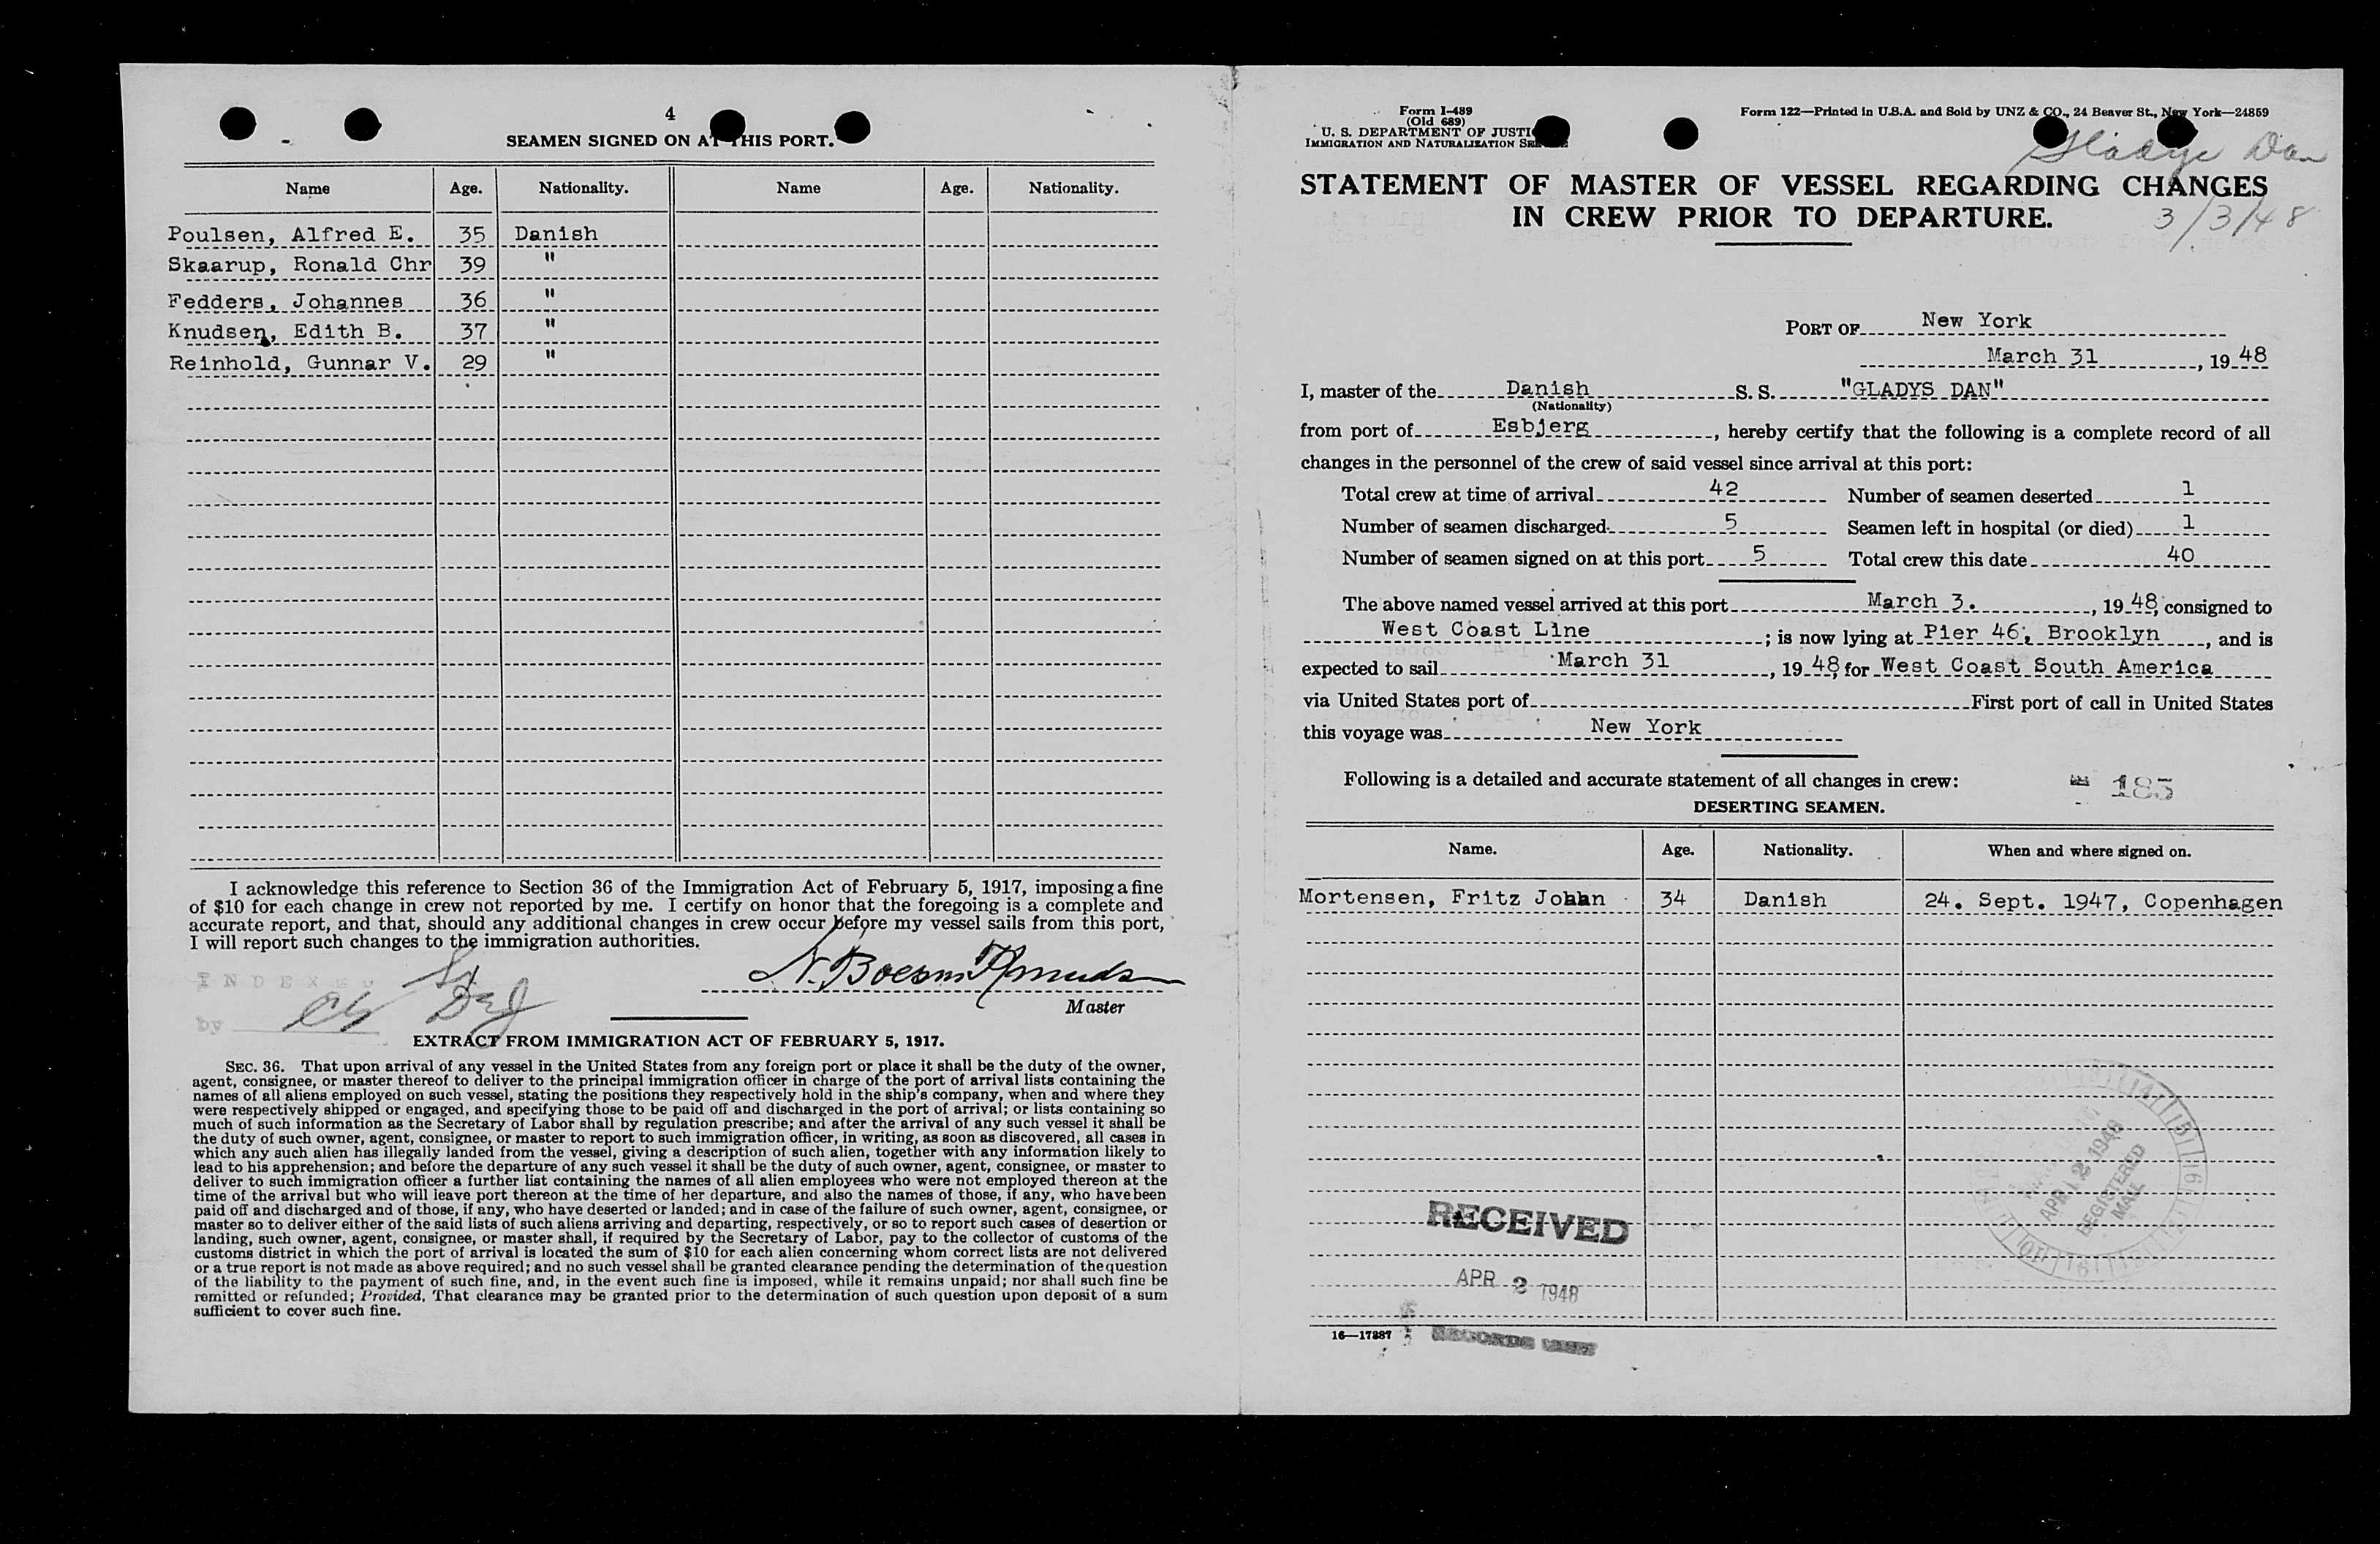 4
SEAMEN SIGNED ON AT THIS PORT.
Name Age. Nationality. Name Age. Nationality.
Poulsen, Alfred E. 35 Danish
Skaarup, Ronald Chr 39 "
Fedders, Johannes 36 "
Knudsen, Edith B. 37 "
Reinhold, Gunnar V. 29 "
I acknowledge this reference to Section 36 of the Immigration Act of February 5, 1917, imposing a fine
of $10 for each change in crew not reported by me. I certify on honor that the foregoing is a complete and
accurate report, and that, should any additional changes in crew occur before my vessel sails from this port,
I will report such changes to the immigration authorities.
INDEXED
by
Master
EXTRACT FROM IMMIGRATION ACT OF FEBRUARY 5, 1917.
SEC. 36. That upon arrival of any vessel in the United States from any foreign port or place it shall be the duty of the owner,
agent, consignee, or master thereof to deliver to the principal immigration officer in charge of the port of arrival lists containing the
names of all aliens employed on such vessel, stating the positions they respectively hold in the ship's company, when and where they
were respectively shipped or engaged, and specifying those to be paid off and discharged in the port of arrival; or lists containing so
much of such information as the Secretary of Labor shall by regulation prescribe; and after the arrival of any such vessel it shall be
the duty of such owner, agent, consignee, or master to report to such immigration officer, in writing, as soon as discovered, all cases in
which any such alien has illegally landed from the vessel, giving a description of such alien, together with any information likely to
lead to his apprehension; and before the departure of any such vessel it shall be the duty of such owner, agent, consignee, or master to
deliver to such immigration officer a further list containing the names of all alien employees who were not employed thereon at the
time of the arrival but who will leave port thereon at the time of her departure, and also the names of those, if any, who have been
paid off and discharged and of those, if any, who have deserted or landed; and in case of the failure of such owner, agent, consignee, or
master so to deliver either of the said lists of such aliens arriving and departing, respectively, or so to report such cases of desertion or
landing, such owner, agent, consignee, or master shall, if required by the Secretary of Labor, pay to the collector of customs of the
customs district in which the port of arrival is located the sum of $10 for each alien concerning whom correct lists are not delivered
or a true report is not made as above required; and no such vessel shall be granted clearance pending the determination of the question
of the liability to the payment of such fine, and, in the event such fine is imposed, while it remains unpaid; nor shall such fine be
remitted or refunded; Provided, That clearance may be granted prior to the determination of such question upon deposit of a sum
sufficient to cover such fine.
Form I-489
(Old 689)
U. S. DEPARTMENT OF JUSTICE
IMMIGRATION AND NATURALIZATION SERVICE
Form 122—Printed in U.S.A. and Sold by UNZ & CO., 24 Beaver St., New York—24859
Gladys Dan
STATEMENT OF MASTER OF VESSEL REGARDING CHANGES
IN CREW PRIOR TO DEPARTURE.
3/3/48
PORT OF New York
March 31, 1948
I, master of the Danish S. S. "GLADYS DAN"
(Nationality)
from port of Esbjerg, hereby certify that the following is a complete record of all
changes in the personnel of the crew of said vessel since arrival at this port:
Total crew at time of arrival 42 Number of seamen deserted 1
Number of seamen discharged 5 Seamen left in hospital (or died) 1
Number of seamen signed on at this port 5 Total crew this date 40
The above named vessel arrived at this port March 3., 1948, consigned to
West Coast Line; is now lying at Pier 46, Brooklyn, and is
expected to sail March 31, 1948, for West Coast South America
via United States port of First port of call in United States
this voyage was New York
Following is a detailed and accurate statement of all changes in crew:
185
DESERTING SEAMEN.
Name. Age. Nationality. When and where signed on.
Mortensen, Fritz Johan 34 Danish 24. Sept. 1947, Copenhagen
RECEIVED
APR 2 1948
APR 2 1948
REGISTERED
MAIL
16—17387